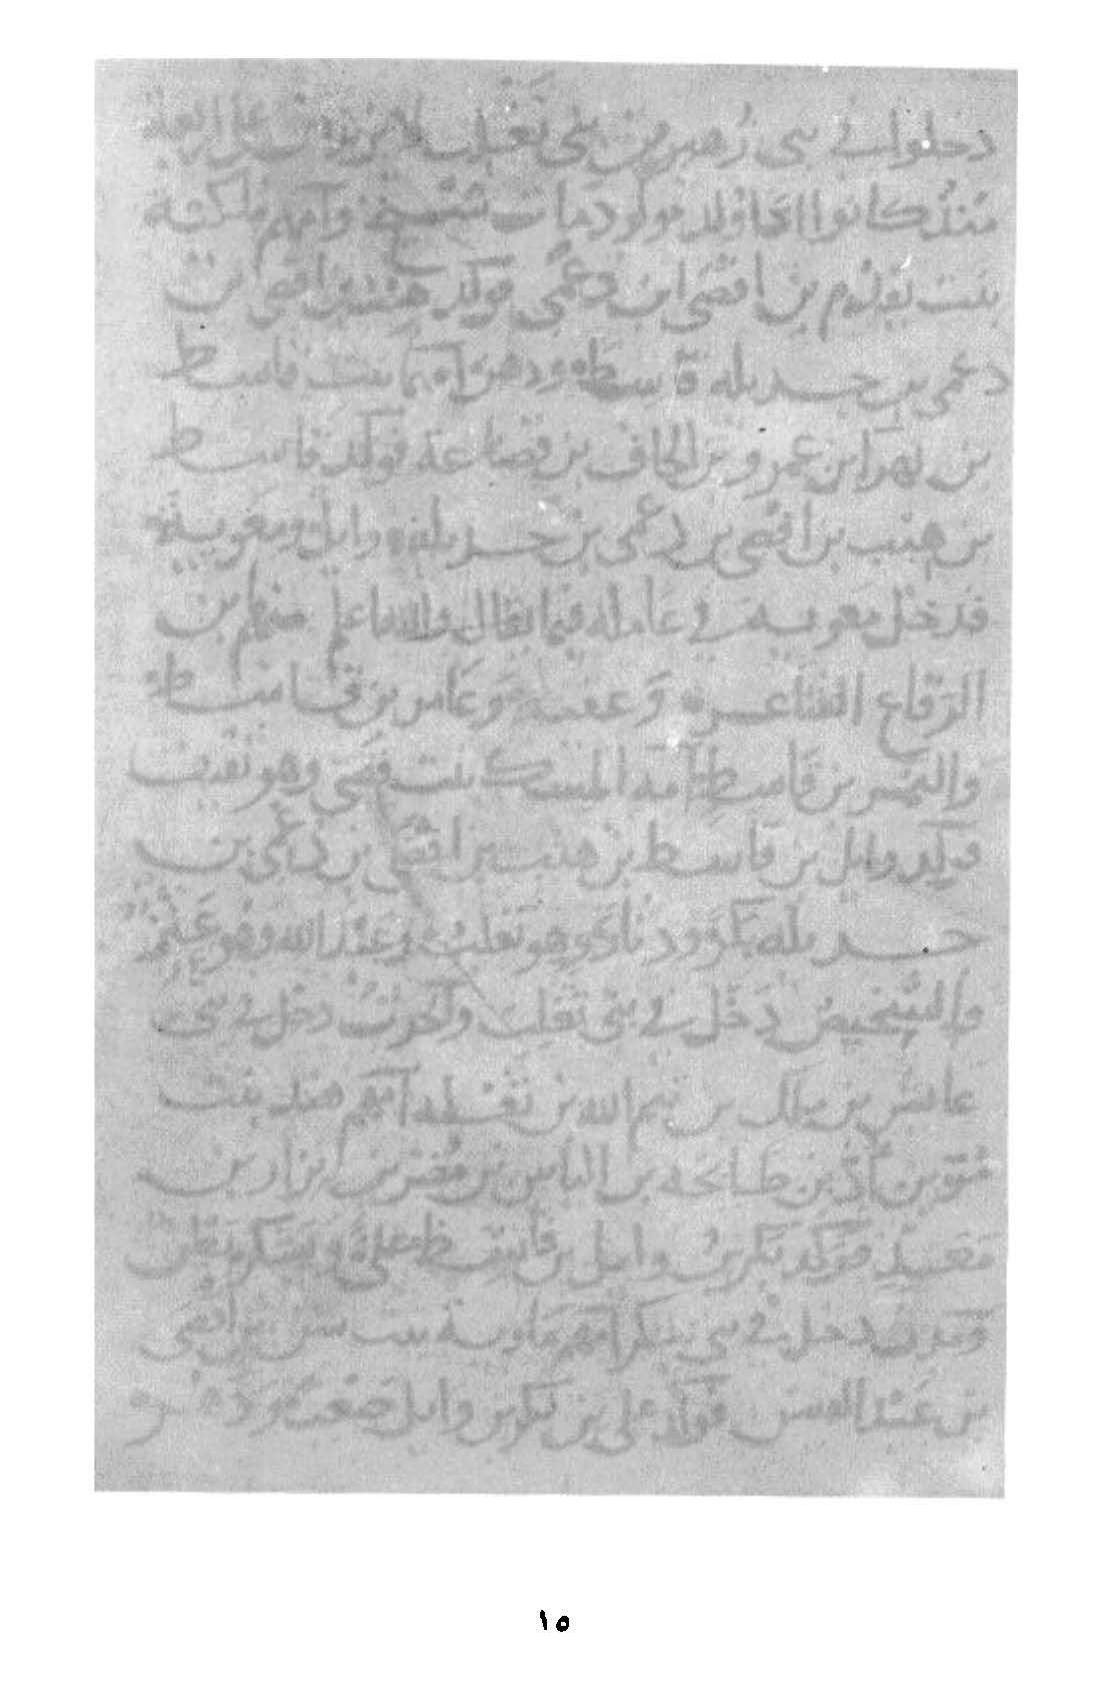 دخلوا في بني زهير من بني تغلب
منذ كانوا اذا ولد مولود مات شيخ وامهم
بنت يقدم بن افصى ابن دعمى فولد هنب بن افصى بن
دعمى بن جديله قاسطا ودهن امهما بنت قاسط
بن بهرا بن عمرو بن الحاف بن قضاعة فولد قاسط
بن هنب بن افصى بن دعمى بن جديله وايل ومعوية
فدخل معوية في عامله فيما يقال والله اعلم منهم بن
الرقاع الشاعر وعامر بن قاسط
والنمر بن قاسط امه المسك بنت قصى وهو ثقيف
فولد وايل بن قاسط بن هنب بن افصى بن دعمى بن
جديله بكرا ودثارا وهو تغلب وعبد الله وهو عنز
والشخيص دخل في بني تغلب والحرث دخل في بني
عائش بن ملك بن تيم الله بن ثعلبه امهم هند بنت
مر بن اد بن طابخه بن الياس بن مضر بن نزار بن
معد فولد بكر بن وايل بن قاسط عليا ويشكر بطن
وبدن دخل في بني يشكر امهم ماوية بنت بن افصى
بن عبد القيس فولد علي بن بكر بن وايل صعبا
١٥